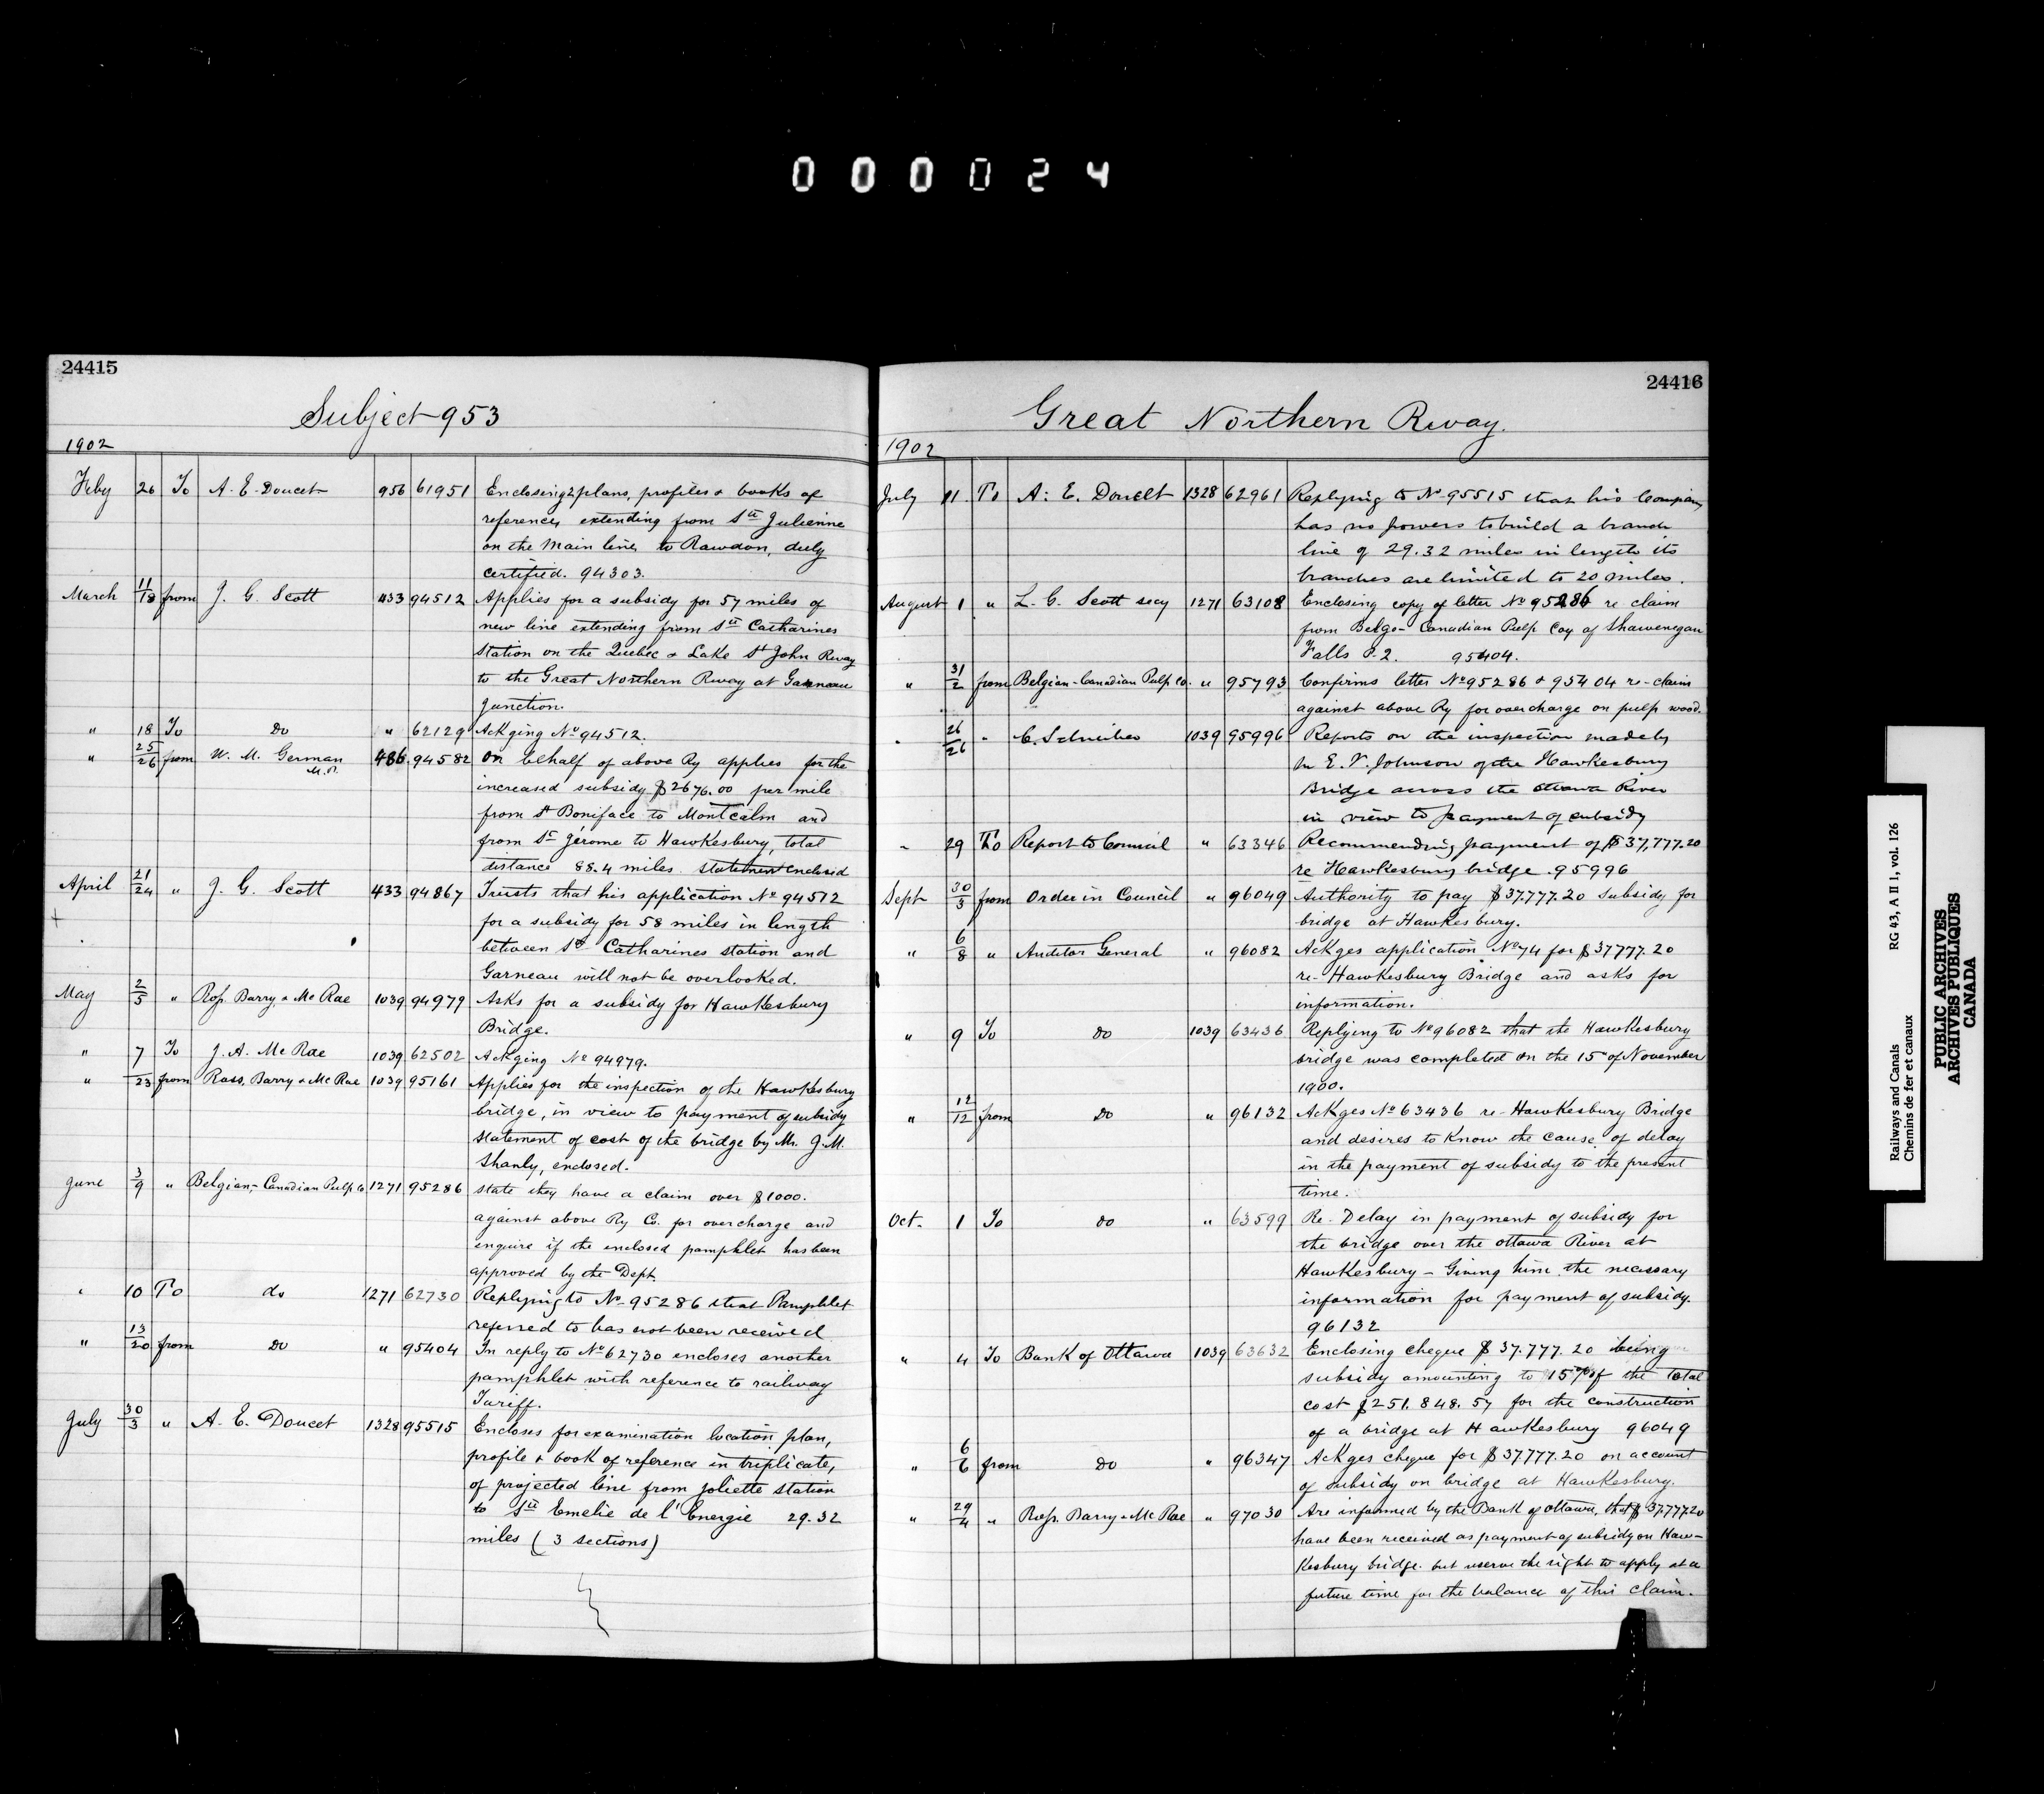 000024
24415
Subject 953
1902
Feby 26 To A. E. Doucet 956 61951 Enclosing 2 plans, profiles & books of
references extending from Ste Julienne
on the Main line, to Rawdon, duly
certified. 94303.
March 11/18 from J. G. Scott 433 94512 Applies for a subsidy for 57 miles of
new line extending from Ste Catharines
station on the Quebec & Lake St John Rway
to the Great Northern Rway at Garneau
Junction.
" 18 To Do " 62129 Ackging No 94512.
" 25/26 from W. M. German M.P. 486 94582 On behalf of above Ry applies for the
increased subsidy $2676.00 per mile
from St Boniface to Montcalm and
from St Jérome to Hawkesbury, total
distance 88.4 miles. Statement enclosed
April 21/24 " J. G. Scott 433 94867 Trusts that his application No 94512
for a subsidy for 58 miles in length
between Ste Catharines station and
Garneau will not be overlooked.
May 2/5 " Ross, Barry & Mc Rae 1039 94979 Asks for a subsidy for Hawkesbury
Bridge.
" 7 To J. A. Mc Rae 1039 62502 Ackging No 94979.
" 23 from Ross, Barry & Mc Rae 1039 95161 Applies for the inspection of the Hawkesbury
bridge, in view to payment of subsidy
statement of cost of the bridge by Mr. J. M.
Shanly, enclosed.
June 3/9 " Belgian-Canadian Pulp Co 1271 95286 State they have a claim over $1000.
against above Ry Co. for overcharge and
enquire if the enclosed pamphlet has been
approved by the Dept
" 10 To do 1271 62730 Replying to No 95286 that Pamphlet
referred to has not been received
" 13/20 from Do " 95404 In reply to No 62730 encloses another
pamphlet with reference to railway
Tariff.
July 30/3 " A. E. Doucet 1328 95515 Encloses for examination location plan,
profile & book of reference in triplicate,
of projected line from Joliette station
to Ste Emelie de l'Energie 29.32
miles (3 sections)
24416
Great Northern Rway.
1902
July 11 To A. E. Doucet 1328 62961 Replying to No 95515 that his Company
has no powers to build a branch
line of 29.32 miles in length its
branches are limited to 20 miles.
August 1 " L. C. Scott secy 1271 63108 Enclosing copy of letter No 95286 re claim
from Belgo-Canadian Pulp Coy of Shawenegan
Falls P.2. 95404.
" 31/2 from Belgian-Canadian Pulp Co. " 95793 Confirms letter No 95286 & 95404 re-claim
against above Ry for overcharge on pulp wood.
" 26/26 " C. Schreiber 1039 95996 Reports on the inspection made by
Mr E. V. Johnson of the Hawkesbury
Bridge across the Ottawa River
in view to payment of subsidy
" 29 To Report to Council " 63346 Recommending payment of $37,777.20
re Hawkesbury bridge. 95996
Sept 30/3 from Order in Council " 96049 Authority to pay $37.777.20 subsidy for
bridge at Hawkesbury.
" 6/8 " Auditor General " 96082 Ackges application No 74 for $37777.20
re-Hawkesbury Bridge and asks for
information.
" 9 To Do 1039 63436 Replying to No 96082 that the Hawkesbury
bridge was completed on the 15" of November
1900.
" 12/12 from Do " 96132 Ackges No 63436 re-Hawkesbury Bridge
and desires to know the cause of delay
in the payment of subsidy to the present
time.
Oct. 1 To do " 63599 Re-Delay in payment of subsidy for
the bridge over the Ottawa River at
Hawkesbury - Giving him the necessary
information for payment of subsidy.
96132
" 4 To Bank of Ottawa 1039 63632 Enclosing cheque $37.777.20 being
subsidy amounting to 15% of the total
cost $251.848.57 for the construction
of a bridge at Hawkesbury 96049
" 6/6 from Do " 96347 Ackges cheque for $37777.20 on account
of subsidy on bridge at Hawkesbury.
" 29/4 " Ross, Barry & Mc Rae " 97030 Are informed by the Bank of Ottawa, that $37,777.20
have been received as payment of subsidy on Haw-
kesbury bridge. but reserve the right to apply at a
future time for the balance of this claim.
Railways and Canals RG 43, A II 1, vol. 126
Chemins de fer et canaux
PUBLIC ARCHIVES
ARCHIVES PUBLIQUES
CANADA